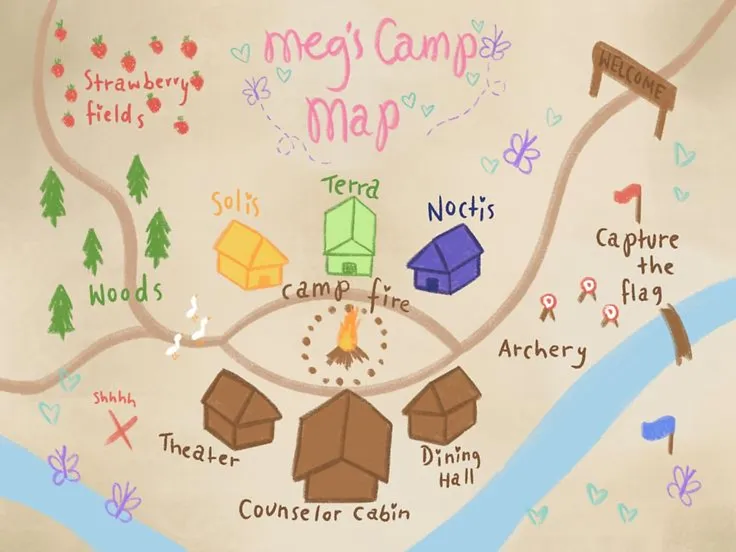 Meg's Camp
Map
WELCOME
Strawberry
fields
Terra
Solis
Noctis
Capture
the
flag
Woods
camp fire
Archery
Shhhh
Theater
Dining
Hall
Counselor Cabin